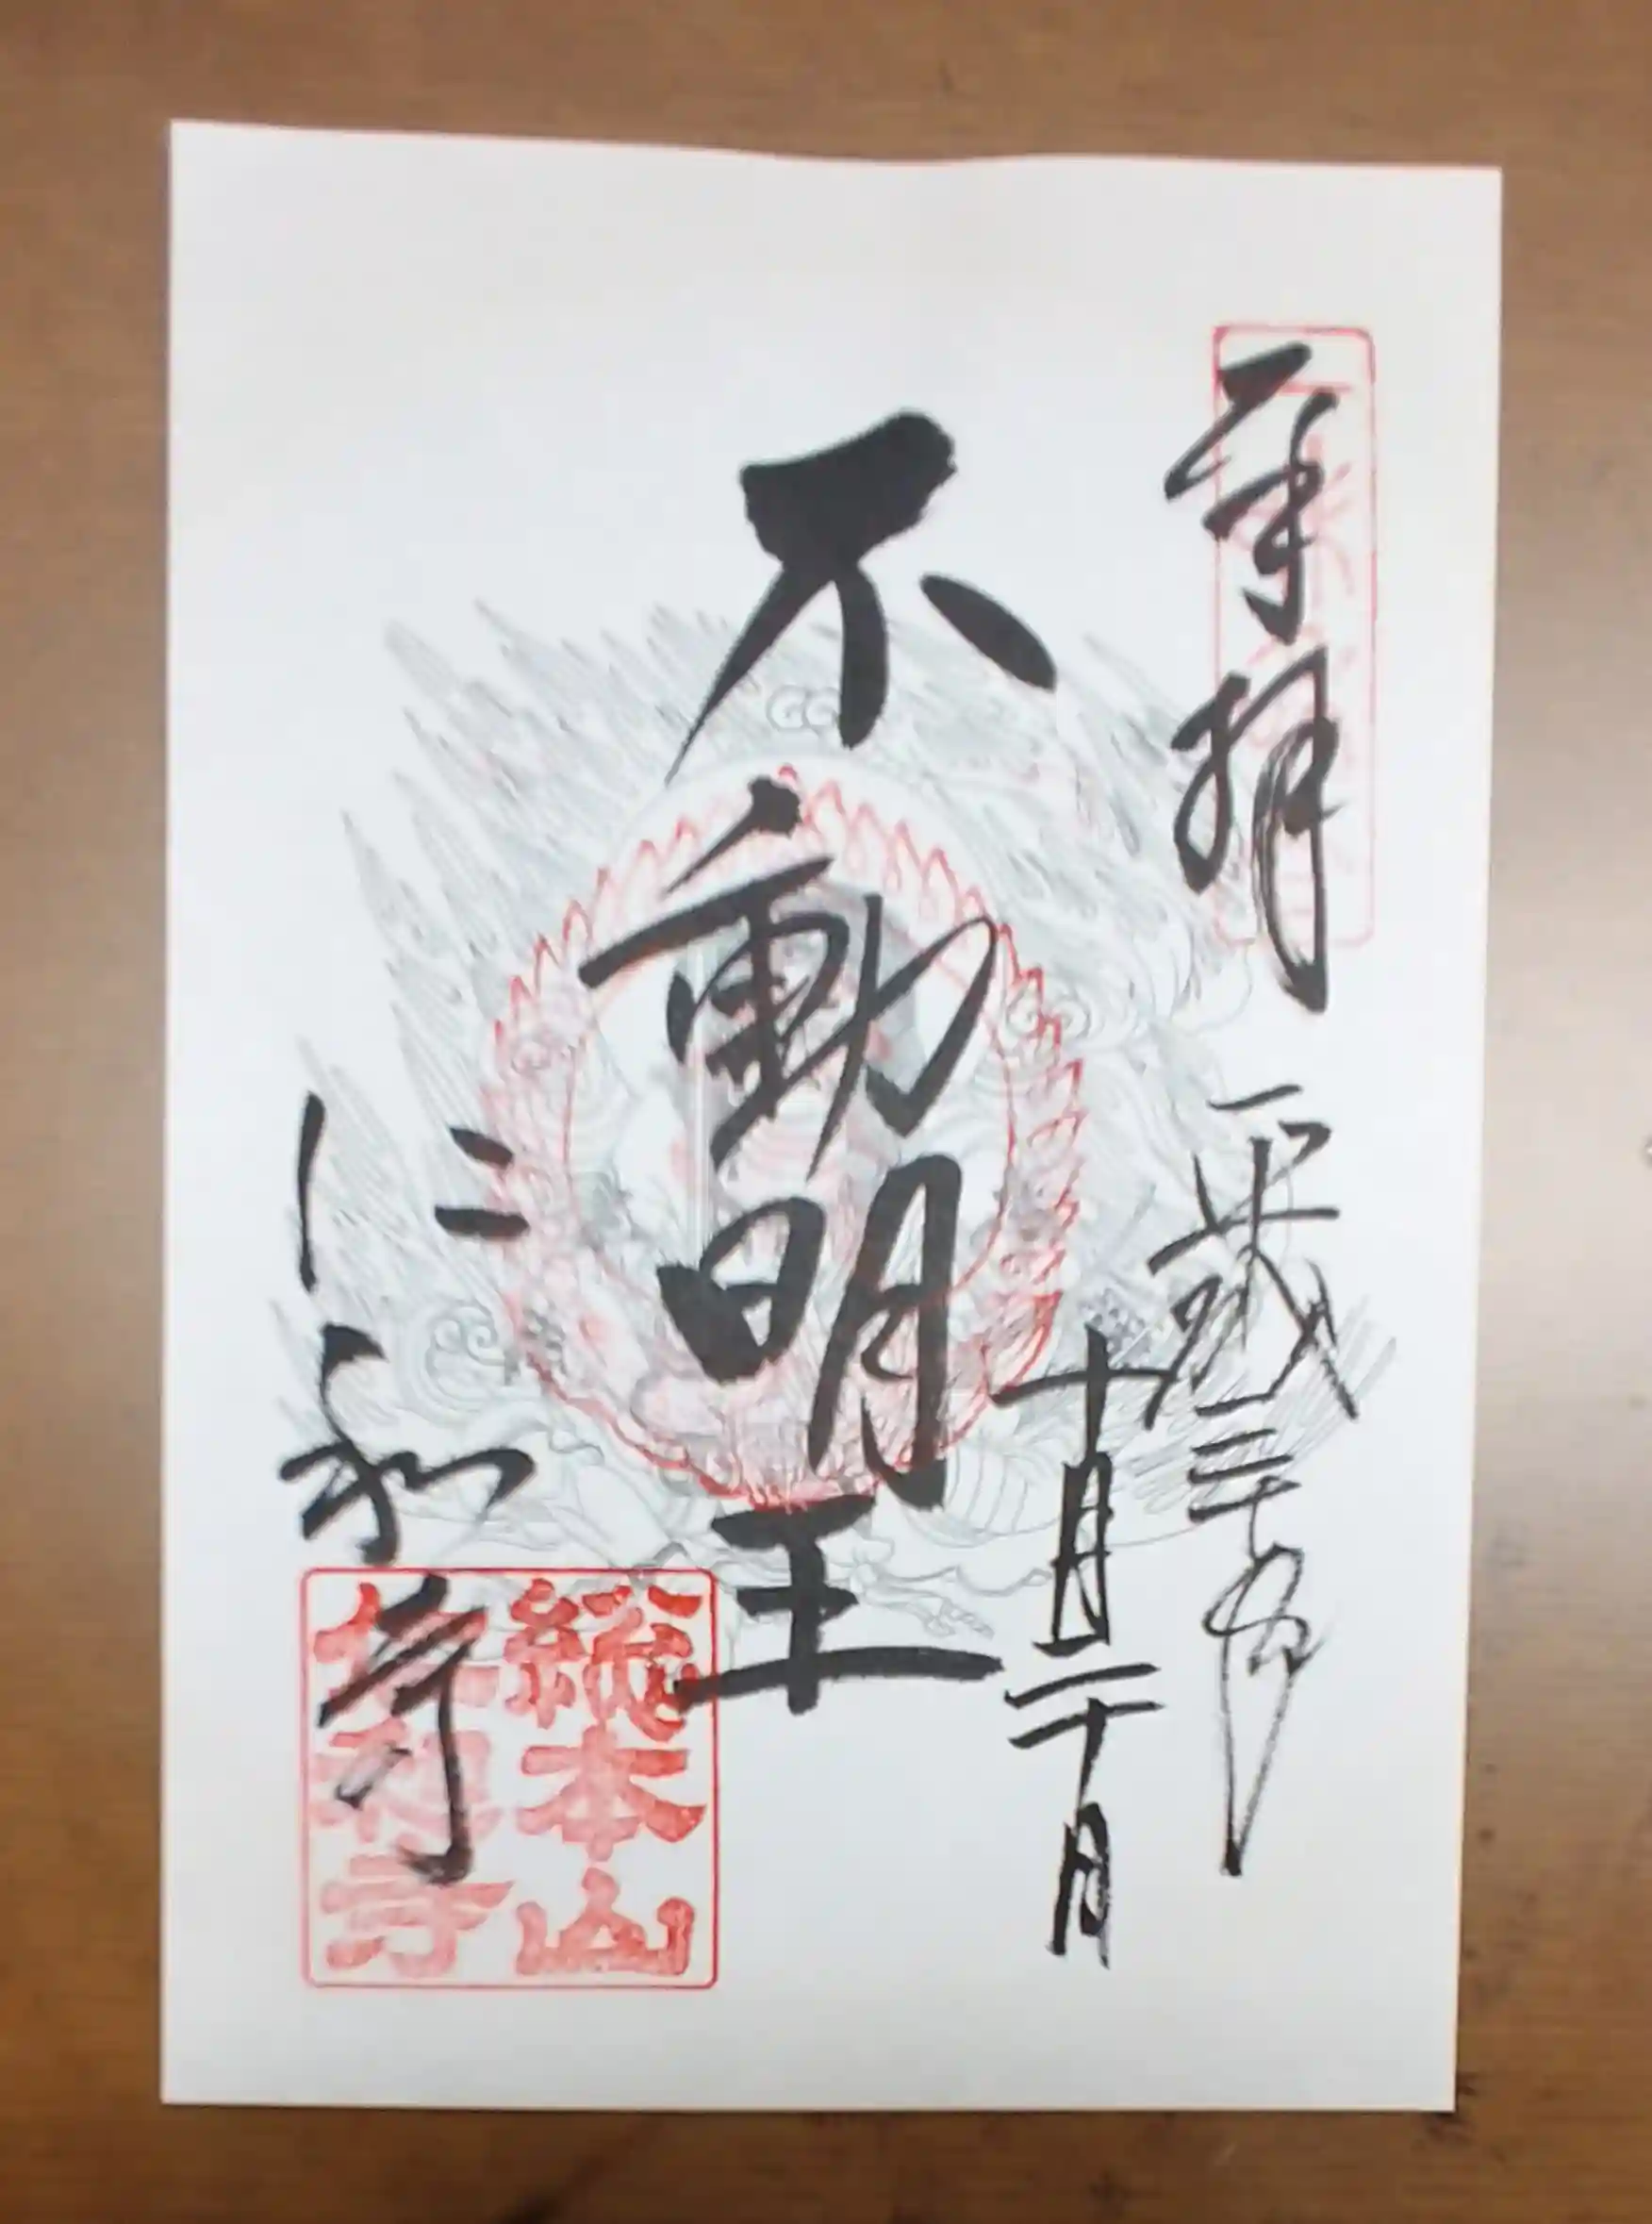 奉拝
平成三十年
十月二十日
不動明王
仁和寺
総本山
仁和寺